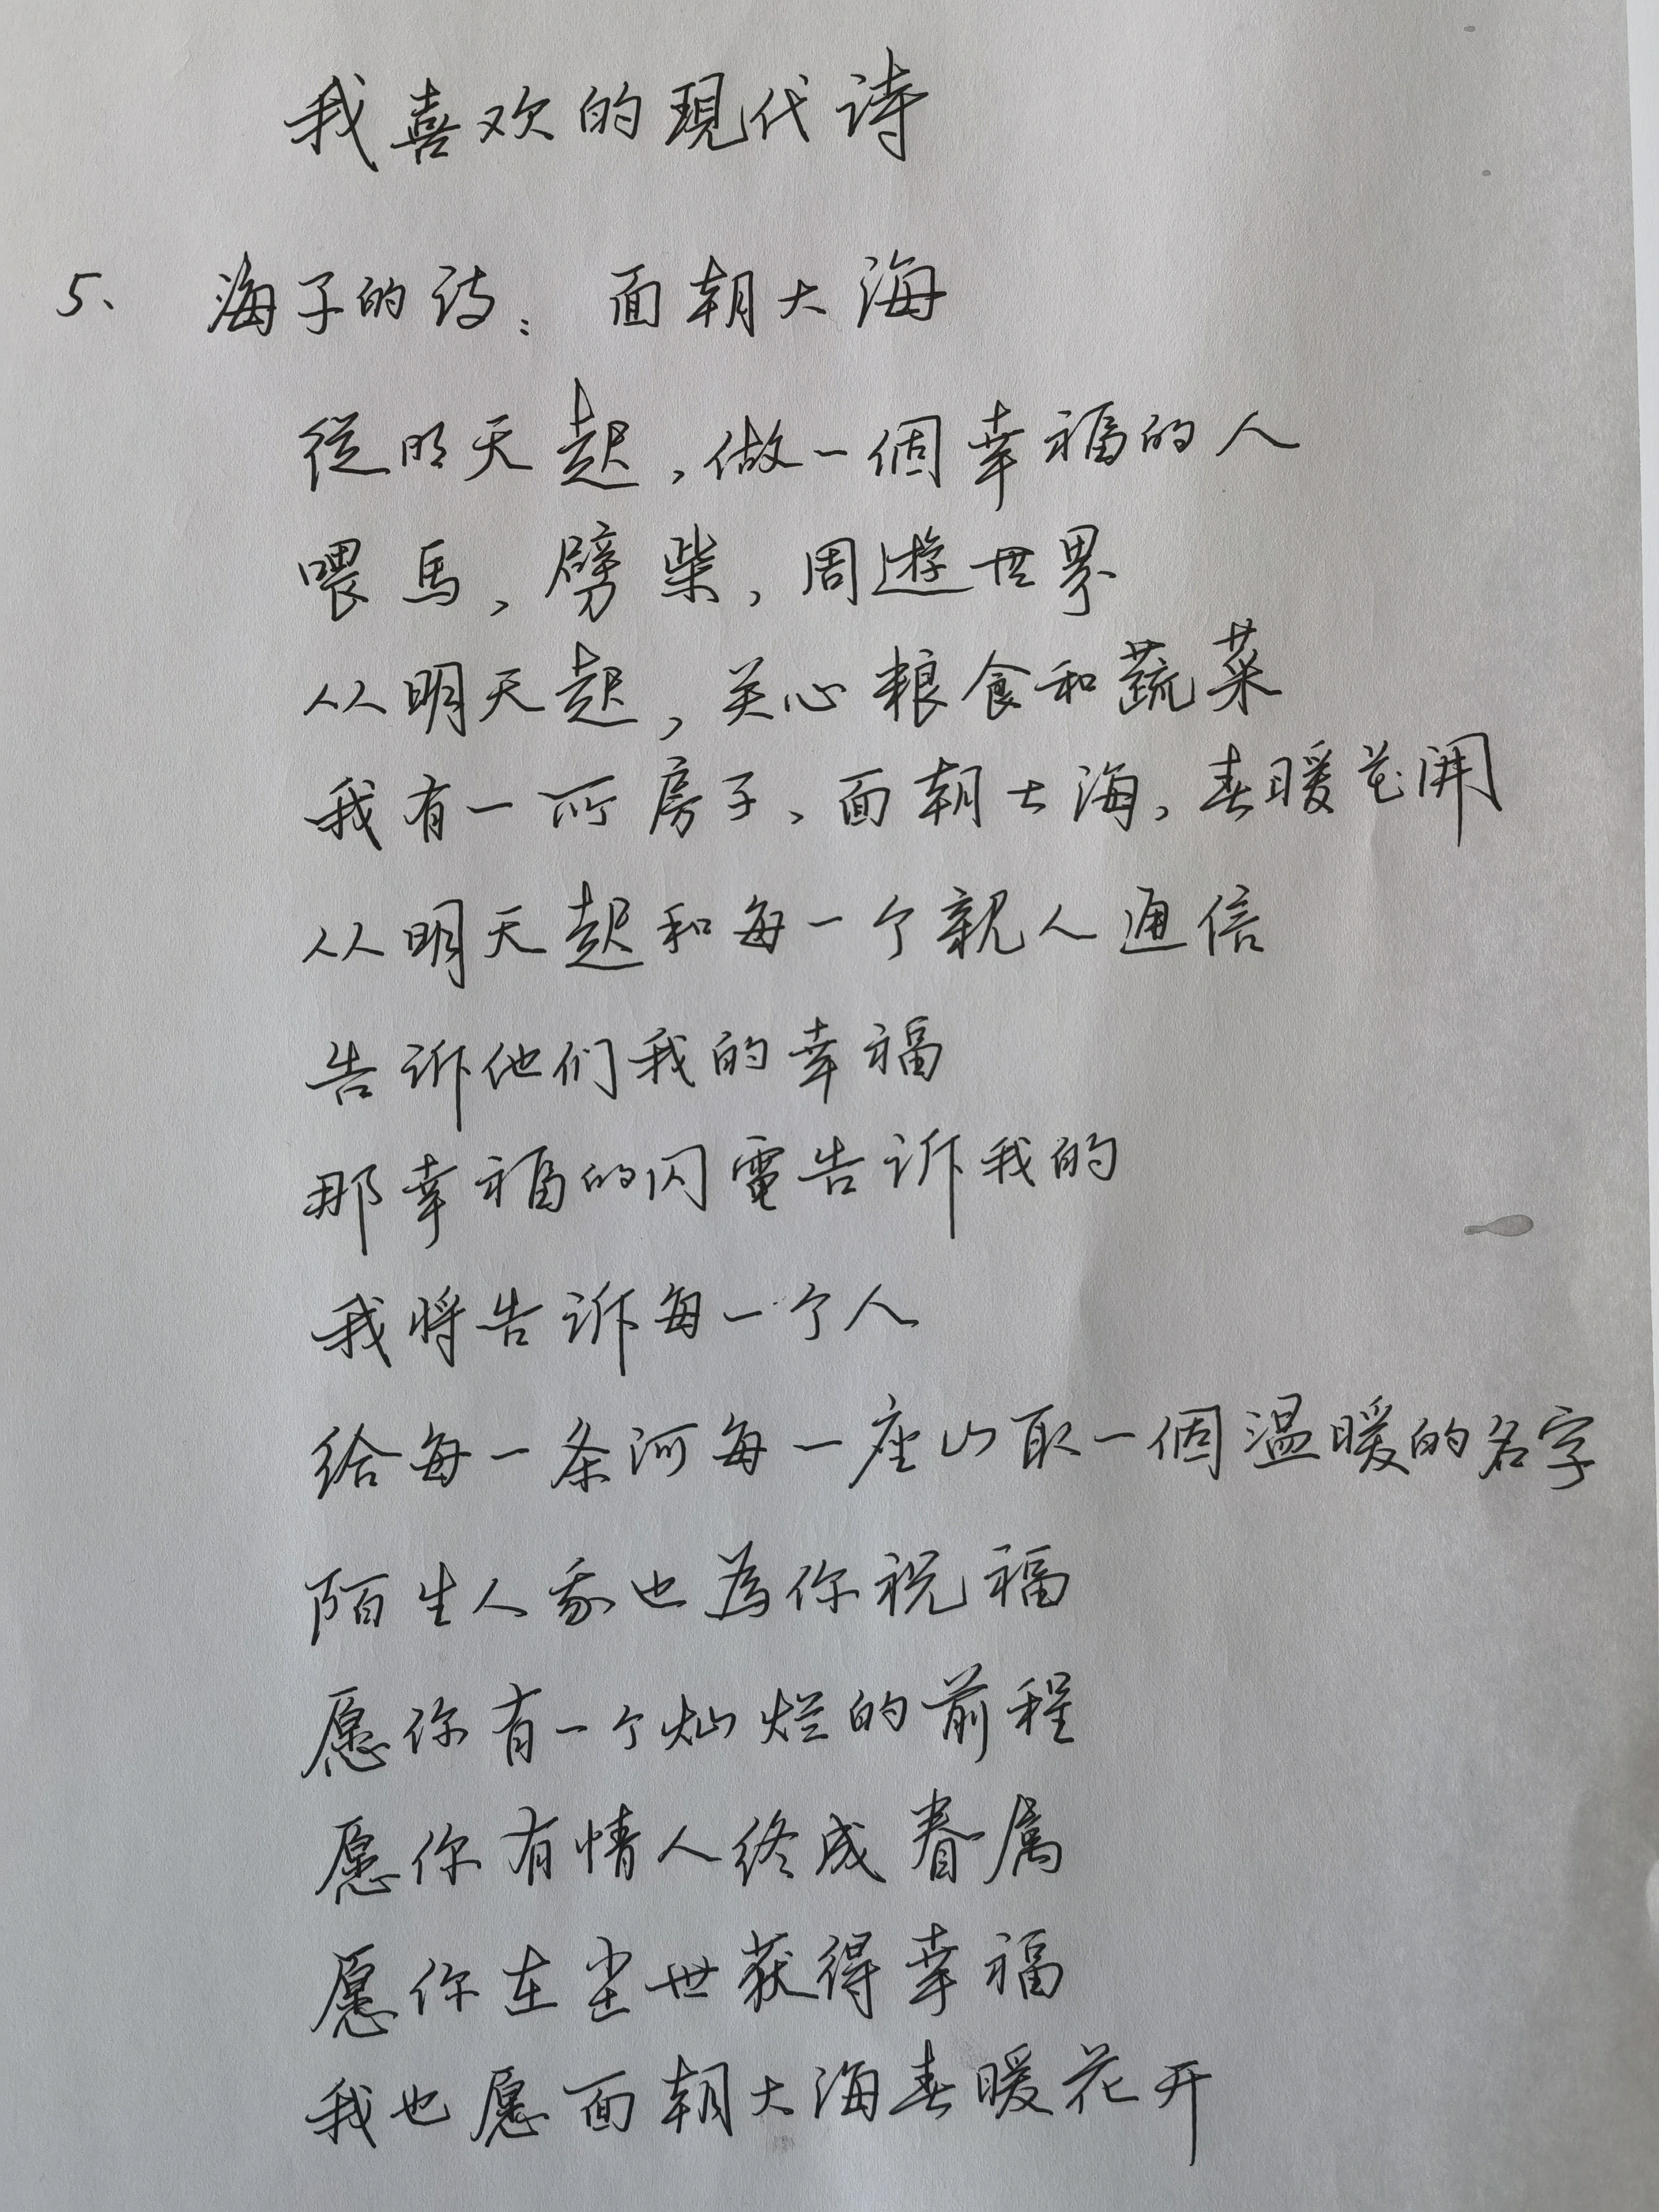 我喜欢的現代诗
5、 海子的诗：面朝大海
從明天起，做一個幸福的人
喂馬，劈柴，周遊世界
从明天起，关心粮食和蔬菜
我有一所房子、面朝大海，春暖花開
从明天起和每一个親人通信
告诉他们我的幸福
那幸福的闪電告诉我的
我将告诉每一个人
给每一条河每一座山取一個温暖的名字
陌生人我也為你祝福
愿你有一个灿烂的前程
愿你有情人终成眷属
愿你在尘世获得幸福
我也愿面朝大海春暖花开